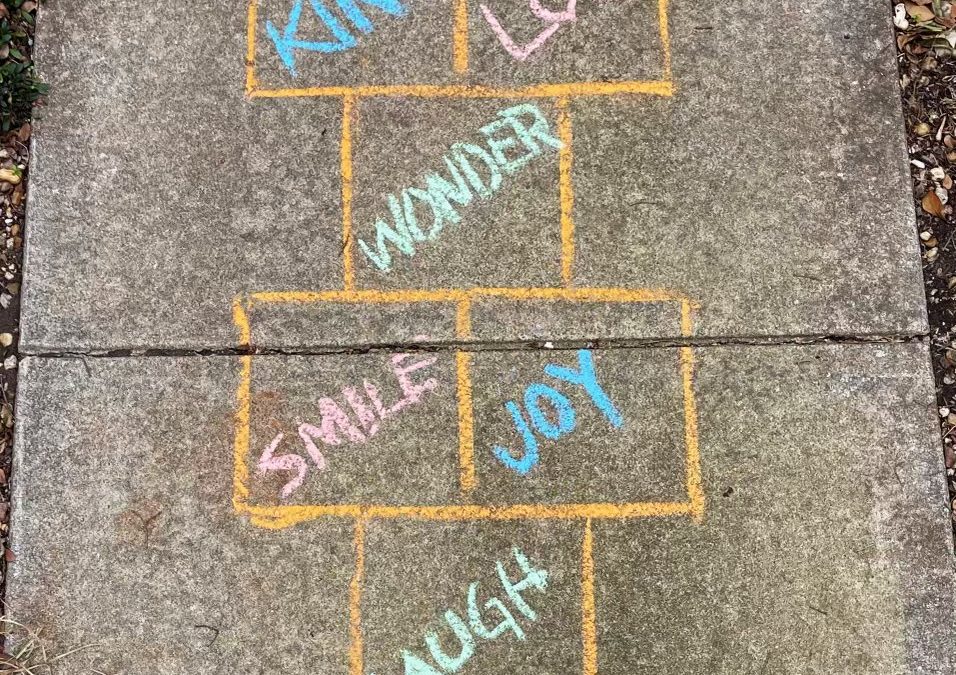 KIN
LO
WONDER
SMILE
JOY
AUGH